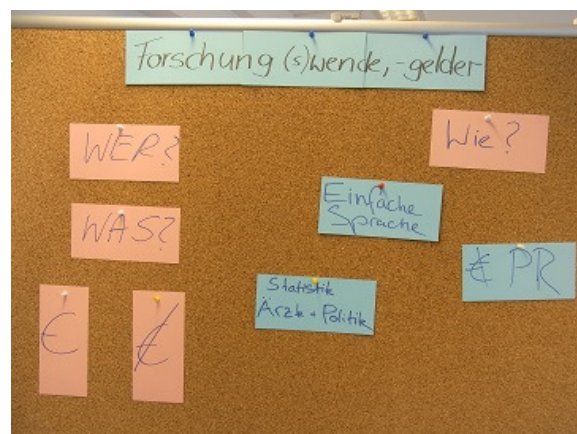 Forschung (s)wende, -gelder
WER?
Wie?
Einfache
Sprache
WAS?
€ PR
Statistik
Ärzte + Politik
€
€